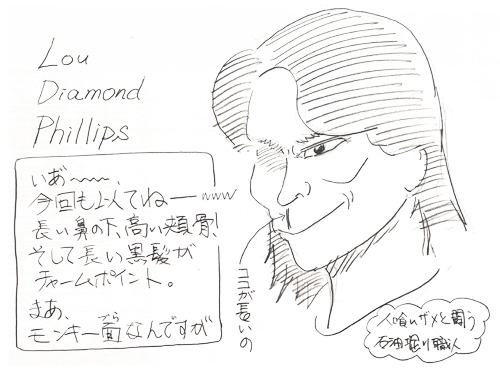 Lou
Diamond
Phillips
いあ〜〜、
今回も似てねーwww
長い鼻の下、高い頬骨、
そして長い黒髪が
チャームポイント。
まあ、
モンキー面なんですが
づら
ココが長いの
人喰いザメと闘う
石油堀り職人